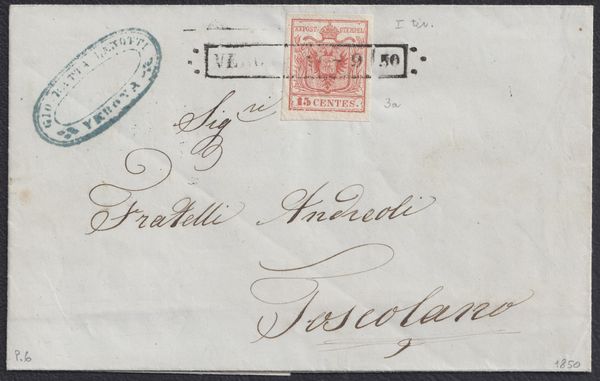 I ter.
GIO. BATTA ZANOTTI
VERONA
KKPOST-STEMPEL
9 50
15 CENTES.
3a
Sig.ri
Fratelli Andreoli
Toscolano
P.6
1850